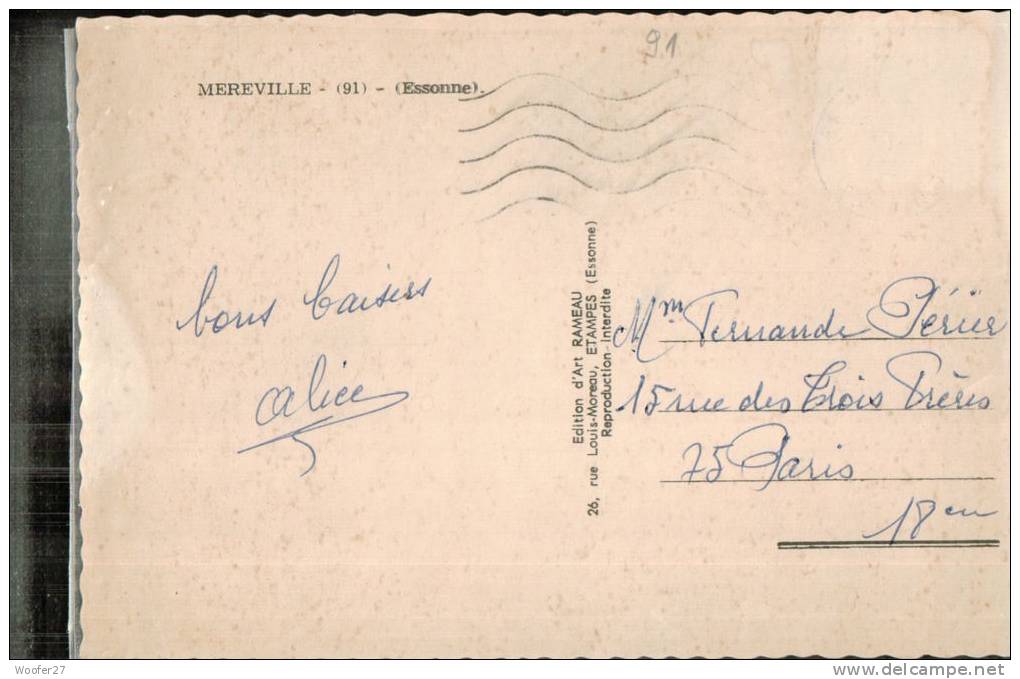 91
MEREVILLE - (91) - (Essonne).
bons baisers
alice
Edition d'Art RAMEAU
26, rue Louis-Moreau, ETAMPES (Essonne)
Reproduction Interdite
Mme Fernande Périer
15 rue des Trois Frères
75 Paris
18em
Woofer27
www.delcampe.net